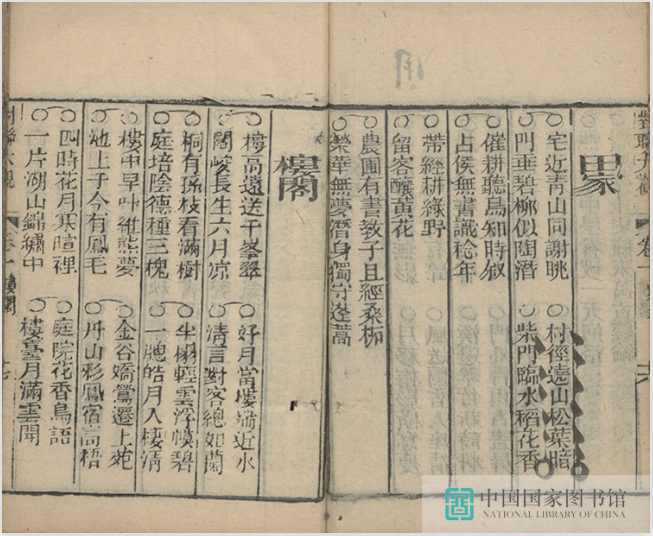 對聯大觀 卷一
田家
○宅近青山同謝眺 ○村徑遶山松葉暗
門垂碧柳似陶潛 柴門臨水稻花香
○催耕聽鳥知時叙
占侯無書識稔年
○帶經耕綠野
留客釀黃花
○農圃有書教子且經桑柘
榮華無夢潛身獨守蓬蒿
樓閣
○樓高遠送千峯翠 ○好月當樓端近水
閣峻長生六月凉 清言對客總如蘭
○桐有孫枝看滿樹 ○半榻輕雲浮幙碧
庭培陰德種三槐 一牕皓月入棲清
○樓中早叶維熊夢 ○金谷嬌鶯遷上苑
池上于今有鳳毛 丹山彩鳳宿高梧
○四時花月寒暄裡 ○庭院花香鳥語
一片湖山錦繡中 樓臺月滿雲開
對聯大觀 卷一 樓閣 十七
中国国家图书馆
NATIONAL LIBRARY OF CHINA